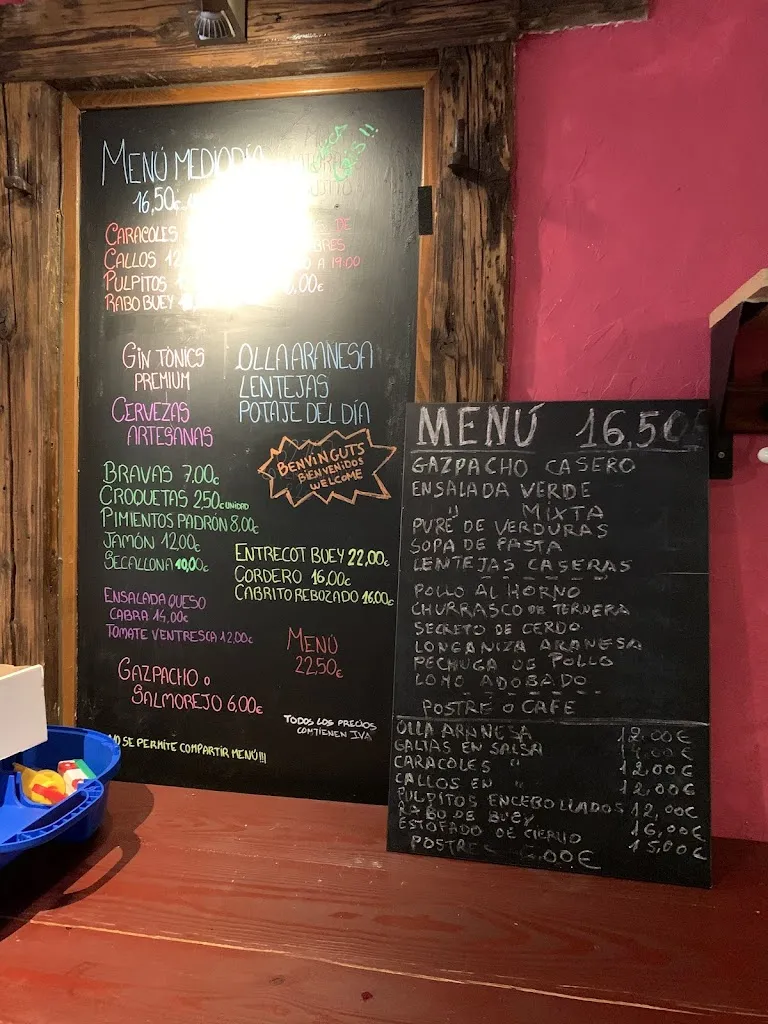 MENÚ MEDIODÍA
16,50€
CARACOLES
DE
CALLOS 12
A 19:00
PULPITOS
RABO BUEY
GIN TÒNICS
PREMIUM
CERVEZAS
ARTESANAS
OLLA ARANESA
LENTEJAS
POTAJE DEL DÍA
BENVINGUTS
BIENVENIDOS
WELCOME
BRAVAS 7.00€
CROQUETAS 2,50€ UNIDAD
PIMIENTOS PADRÓN 8,00€
JAMÓN 12,00€
SECALLONA 10,00€
ENTRECOT BUEY 22,00€
CORDERO 16,00€
CABRITO REBOZADO 16.00€
ENSALADA QUESO
CABRA 14,00€
TOMATE VENTRESCA 12,00€
MENÚ
22,50€
GAZPACHO O
SALMOREJO 6,00€
TODOS LOS PRECIOS
CONTIENEN IVA
NO SE PERMITE COMPARTIR MENÚ!!!
MENÚ 16,50€
GAZPACHO CASERO
ENSALADA VERDE
" MIXTA
PURÉ DE VERDURAS
SOPA DE PASTA
LENTEJAS CASERAS
POLLO AL HORNO
CHURRASCO DE TERNERA
SECRETO DE CERDO
LONGANIZA ARANESA
PECHUGA DE POLLO
LOMO ADOBADO
POSTRE O CAFE
OLLA ARANESA 12.00€
GALTAS EN SALSA
CARACOLES " 12,00€
CALLOS EN " 12,00€
PULPITOS ENCEBOLLADOS 12,00€
RABO DE BUEY 16,00€
ESTOFADO DE CIERVO 15,00€
POSTRE 6.00€